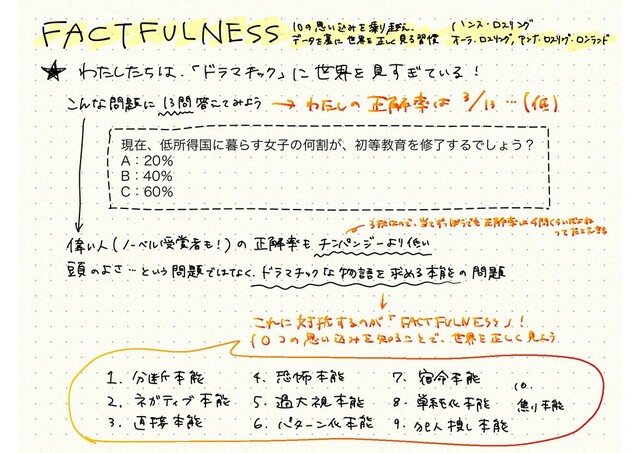 FACTFULNESS
10の思い込みを乗り越え、
データを基に世界を正しく見る習慣
ハンス・ロスリング
オーラ・ロスリング, アンナ・ロスリング・ロンランド
★ わたしたちは、「ドラマチック」に世界を見すぎている!
こんな問題に13問答えてみよう → わたしの正解率は 3/13 … (低)
現在、低所得国に暮らす女子の何割が、初等教育を修了するでしょう?
A:20%
B:40%
C:60%
3択なので、当てずっぽうでも正解率は4問くらいだよね
ってなところ
偉い人 (ノーベル受賞者も!) の正解率もチンパンジーより低い
頭のよさ…という問題ではなく、ドラマチックな物語を求める本能の問題
これに対抗するのが「FACTFULNESS」!
10コの思い込みを知ることで、世界を正しく見よう
1. 分断本能
2. ネガティブ本能
3. 直接本能
4. 恐怖本能
5. 過大視本能
6. パターン化本能
7. 宿命本能
8. 単純化本能
9. 犯人捜し本能
10.
焦り本能